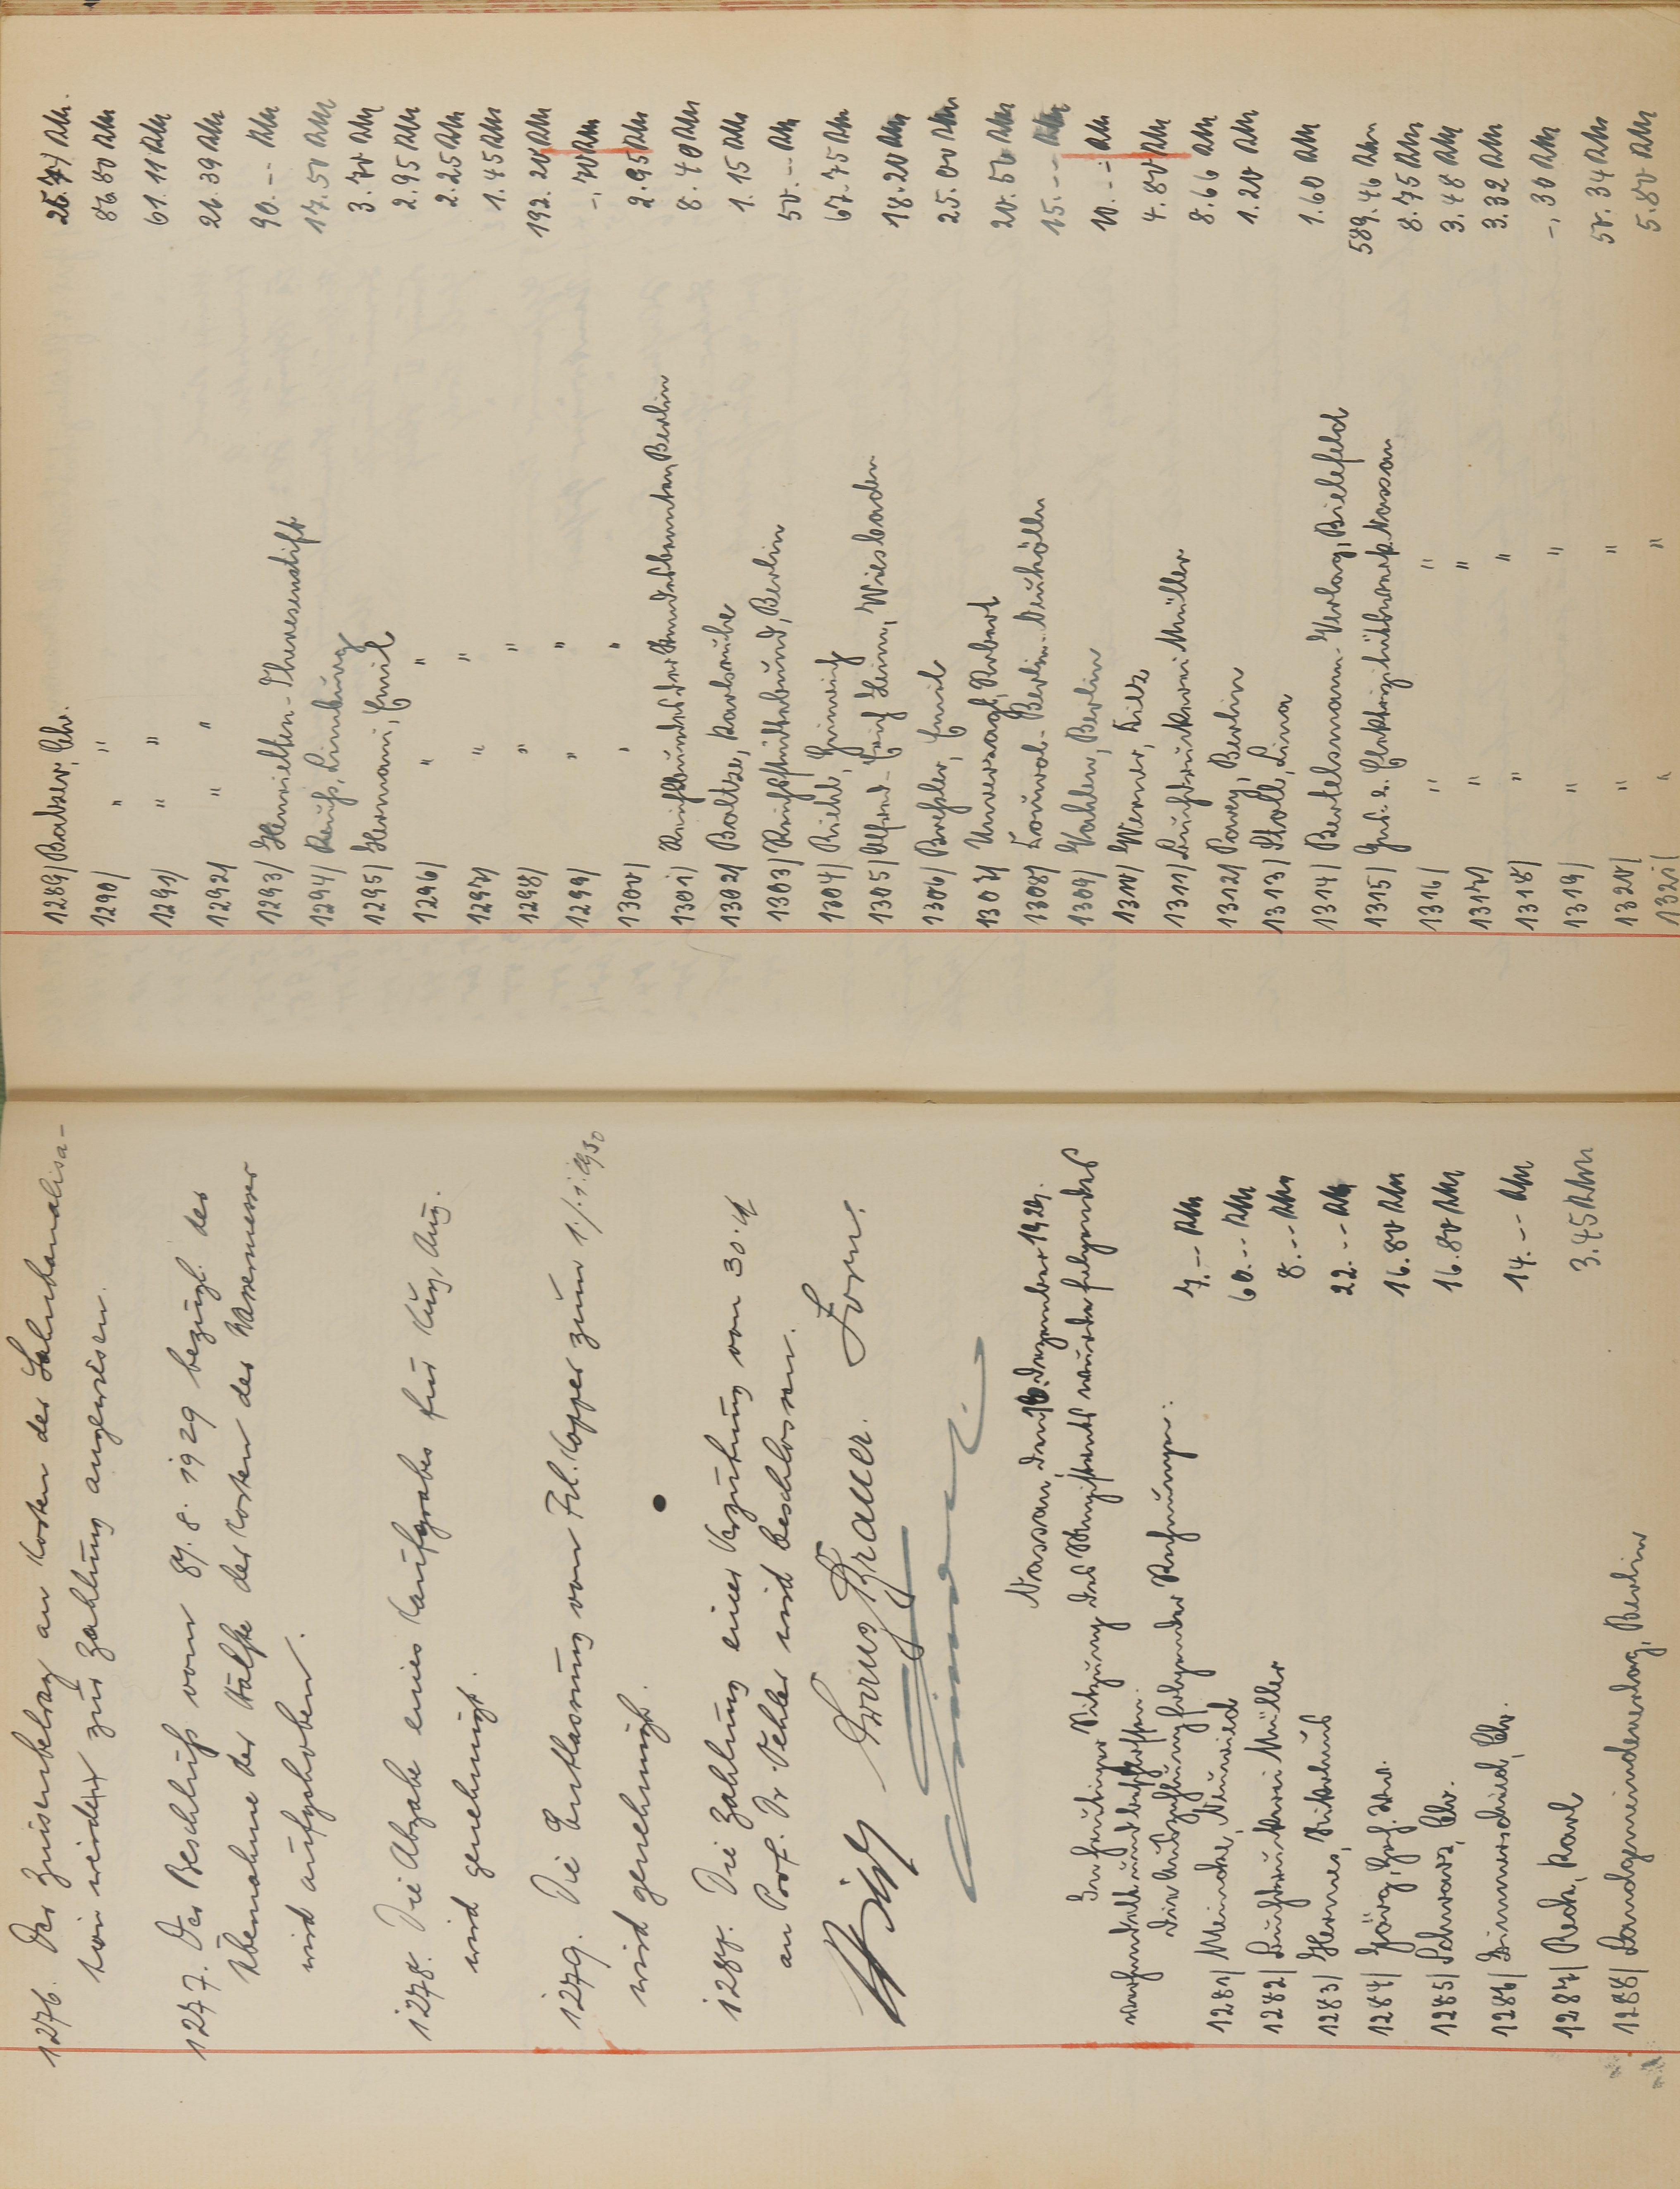 1276. Der Zinsenbetrag an Kosten der Lahnkanalisa-
tion wird zur Zahlung angewiesen.
1277. Der Beschluß vom 8. 1929 bezügl. der
Übernahme der Hälfte der Kosten der Wassermesser
wird aufgehoben.
1278. Die Abgabe eines Kaufgrabes für Aug.
wird genehmigt.
1279. Die Entlassung von Frl. Kopper zum 1./1. 1930
wird genehmigt.
1280. Die Zahlung einer Vergütung von 30.
an Prof. Dr. wird beschlossen.
Brauer.
Nassau, den 18. Dezember 1929.
In heutiger Sitzung des Magistrats wurde folgendes
verhandelt und beschlossen.
Die Auszahlung folgender Rechnungen:
1281/ Meincke, Neuwied 7.-- RM
1282/ Buchdruckerei Müller 60.-- RM
1283/ Hermes, 8.-- RM
1284/ Görg, 22.-- RM
1285/ Schwarz, Chr. 16.80 RM
1286/ Zimmerschied, Chr. 16.80 RM
1287/ Reck, Karl 14.-- RM
1288/ Landgemeindeverlag, Berlin 3.45 RM
1289/ Balzer, Chr. RM.
1290/ " " 86.80 RM
1291/ " " 61.11 RM
1292/ " " 26.39 RM
1293/ Henrietten-Theresenstift 90.-- RM
1294/ Reuß, Limburg 17.50 RM
1295/ Hermani, Emil 3.70 RM
1296/ " " 2.95 RM
1297/ " " 2.25 RM
1298/ " " 1.45 RM
1299/ " " 192.20 RM
1300/ " " -.70 RM
1301/ Reichsbund der Standesbeamten, Berlin 2.95 RM
1302/ Boltze, Karlsruhe 8.40 RM
1303/ Reichsstädtebund, Berlin 1.15 RM
1304/ Riehl, Heinrich 50.-- RM
1305/ Alfred-Erich Heim, Wiesbaden 67.75 RM
1306/ Breßler, Emil 18.20 RM
1307/ Unverzagt, Robert 25.00 RM
1308/ Berlin-Neukölln 20.50 RM
1309/ Vahlen, Berlin 15.-- RM
1310/ Werner, Fritz 10.-- RM
1311/ Buchdruckerei Müller 4.80 RM
1312/ Parey, Berlin 8.66 RM
1313/ Stoll, Lina 1.20 RM
1314/ Bertelsmann-Verlag, Bielefeld 1.60 RM
1315/ Gas- u. Elektrizitätswerk Nassau 589.46 RM
1316/ " " 8.75 RM
1317/ " " 3.48 RM
1318/ " " 3.32 RM
1319/ " " -.30 RM
1320/ " " 50.34 RM
1321/ " " 5.80 RM